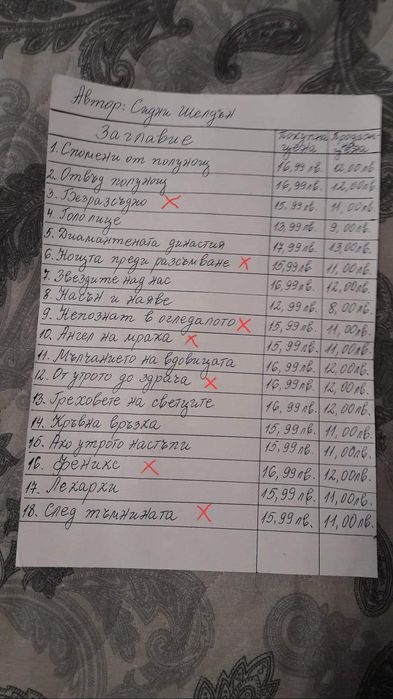 Автор: Сидни Шелдън
Заглавие Покупна цена Продажна цена
1. Спомени от полунощ 16,99 лв. 12,00 лв.
2. Отвъд полунощ 16,99 лв. 12,00 лв.
3. Безразсъдно 15,99 лв. 11,00 лв.
4. Голо лице 13,99 лв. 9,00 лв.
5. Диамантената династия 17,99 лв. 13,00 лв.
6. Нощта преди разсъмване 15,99 лв. 11,00 лв.
7. Звездите над нас 16,99 лв. 12,00 лв.
8. Насън и наяве 12,99 лв. 8,00 лв.
9. Непознат в огледалото 15,99 лв. 11,00 лв.
10. Ангел на мрака 15,99 лв. 11,00 лв.
11. Мълчанието на вдовицата 16,99 лв. 12,00 лв.
12. От утрото до здрача 16,99 лв. 12,00 лв.
13. Греховете на светците 16,99 лв. 12,00 лв.
14. Кръвна връзка 15,99 лв. 11,00 лв.
15. Ако утрото настъпи 15,99 лв. 11,00 лв.
16. Феникс 16,99 лв. 12,00 лв.
17. Лекарки 15,99 лв. 11,00 лв.
18. След тъмнината 15,99 лв. 11,00 лв.